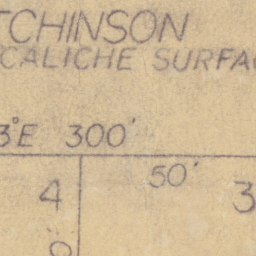 TCHINSON
CALICHE SURFA
3°E 300'
50'
4 3
0